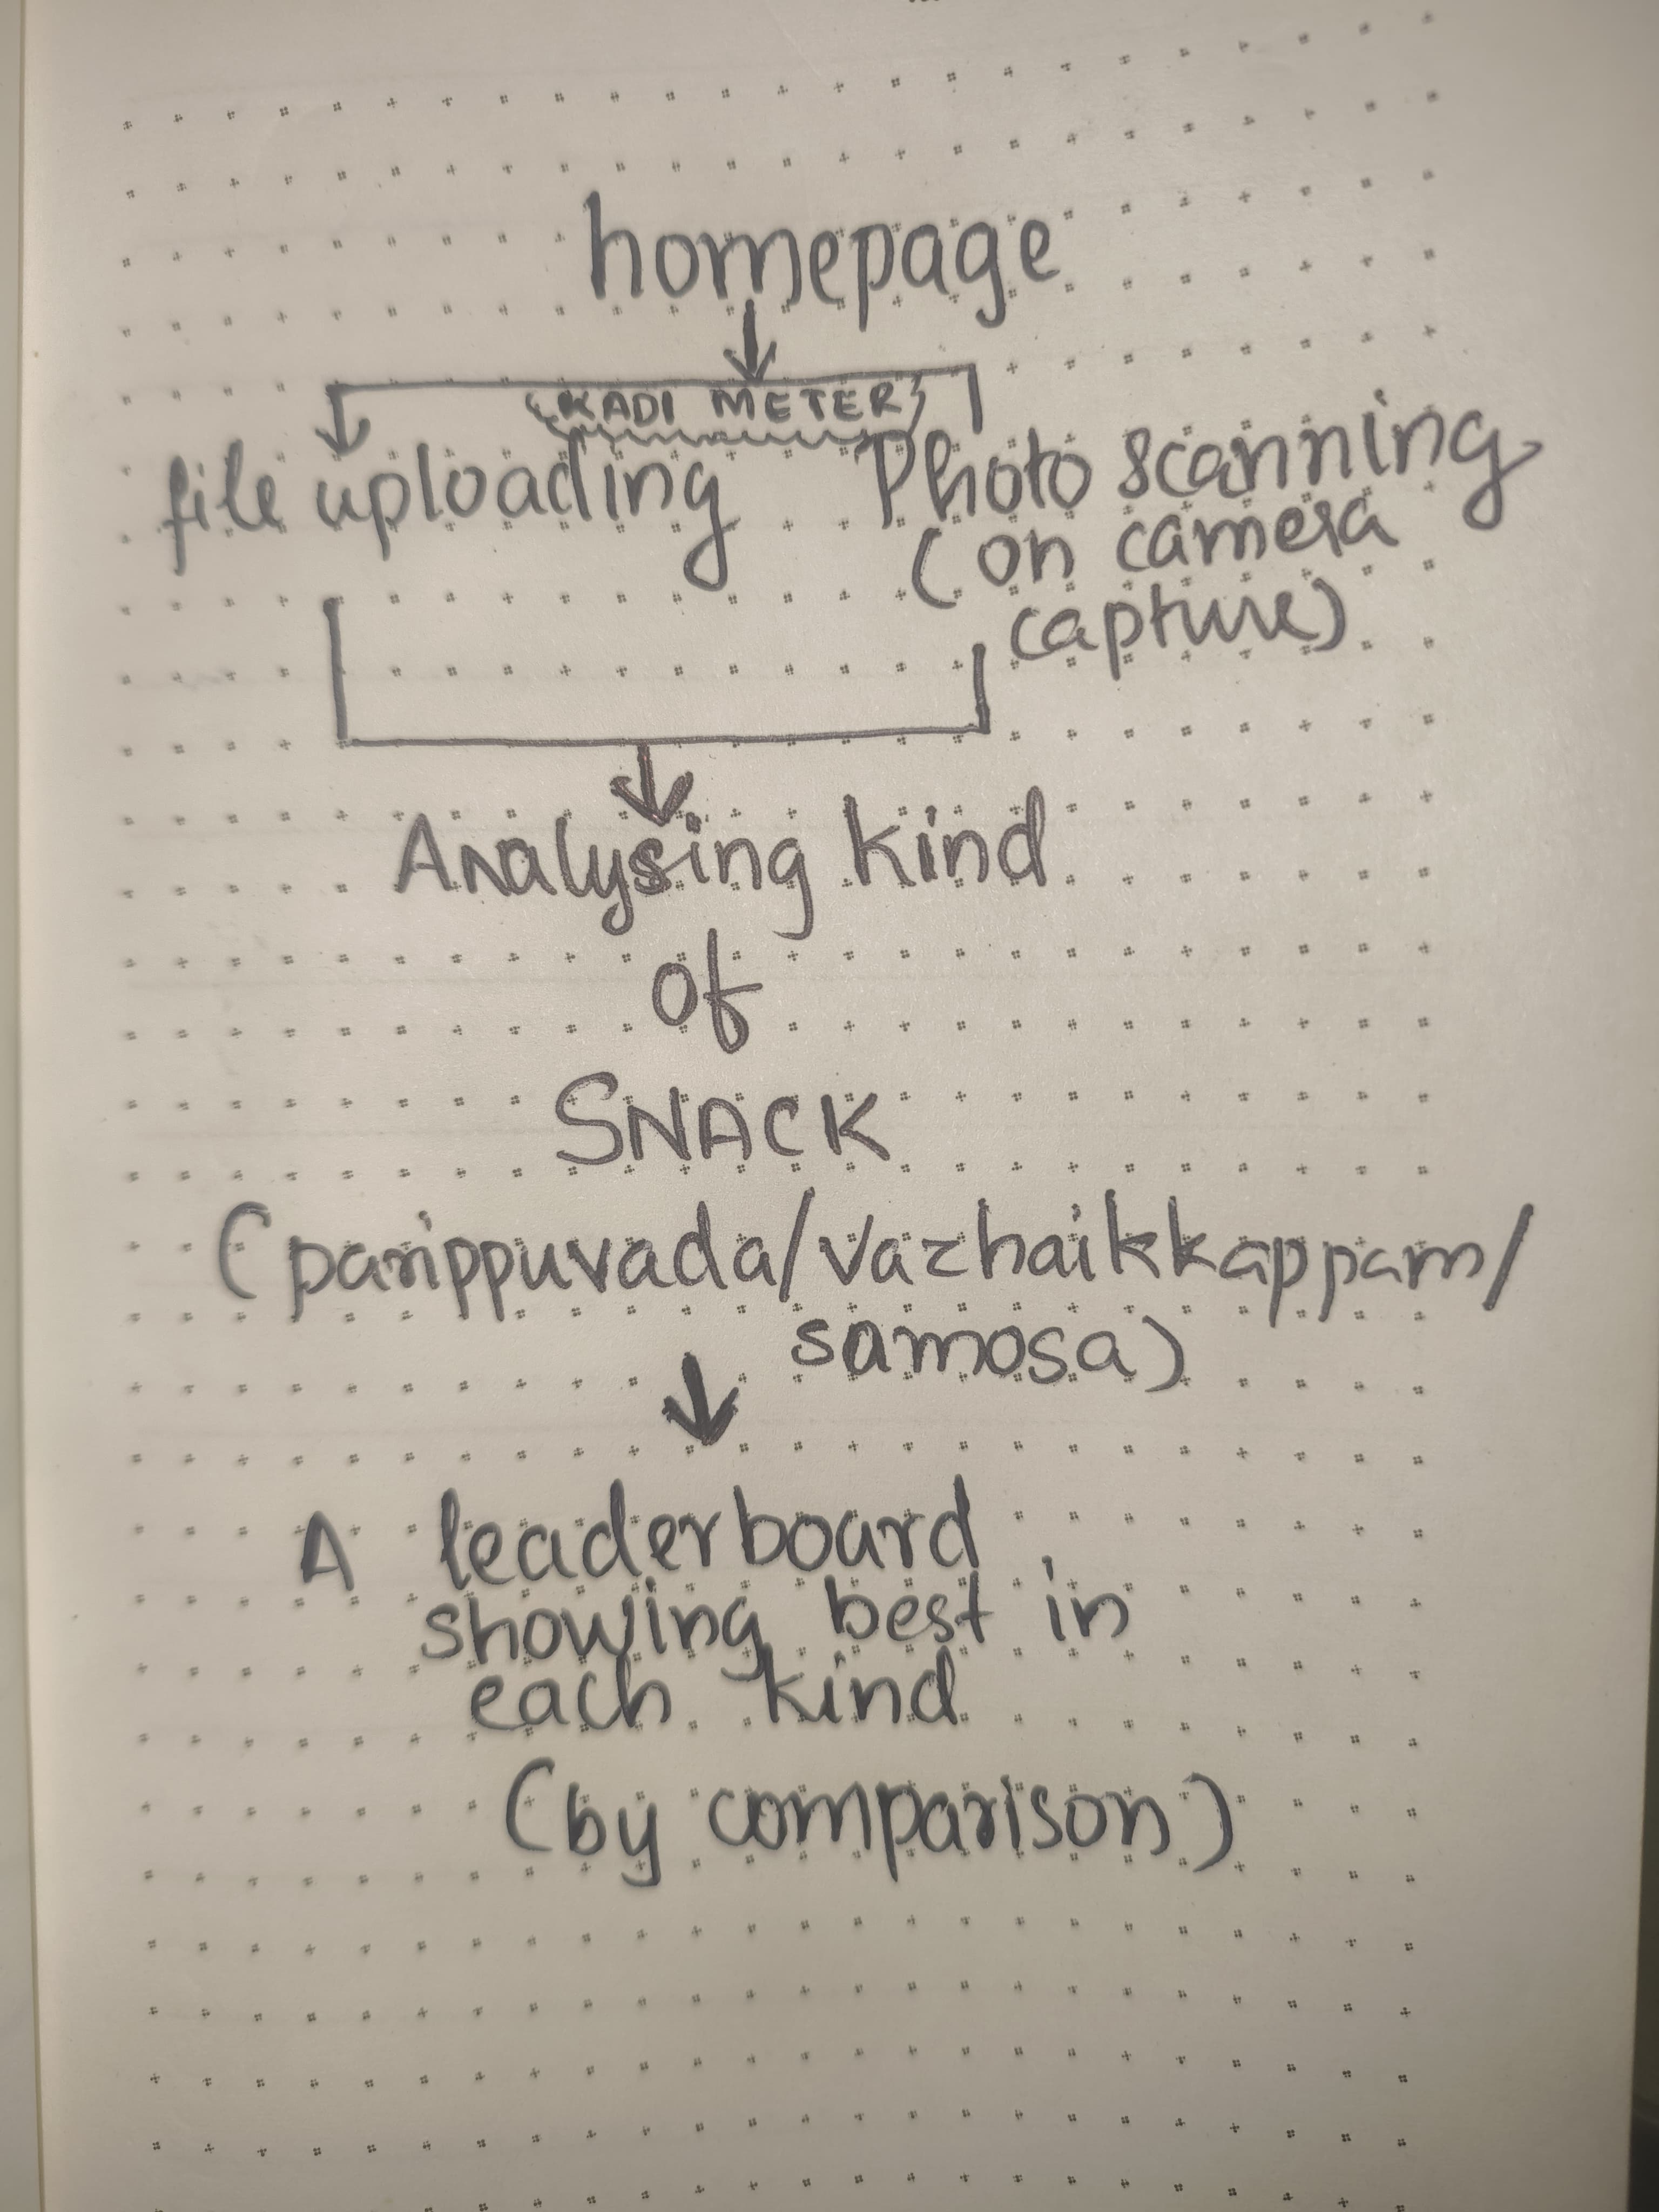 homepage
KADI METER
file uploading
Photo scanning
(on camera
capture)
Analysing kind
of
SNACK
(parippuvada/vazhaikkappam/
samosa)
A leaderboard
showing best in
each kind
(by comparison)